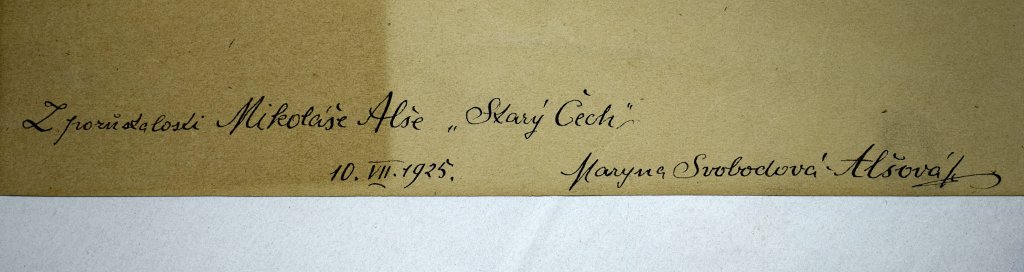 Z porůstalosti Mikoláše Alše „Starý Čech“
10. VII. 1925.
Maryna Svobodová-Alšová